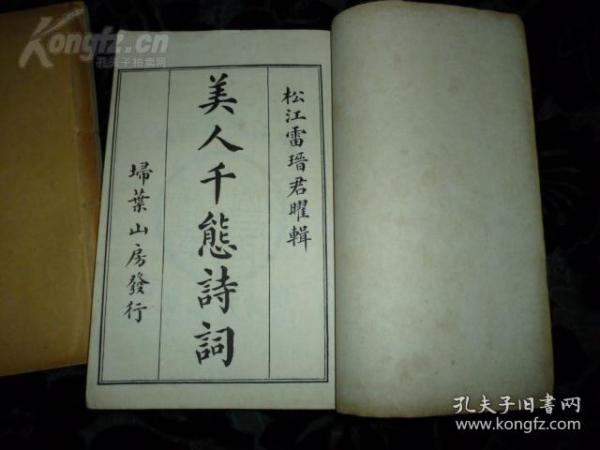 松江雷瑨君曜輯
美人千態詩詞
埽葉山房發行
Kongfz.cn
孔夫子拍卖网
孔夫子旧书网
www.kongfz.com